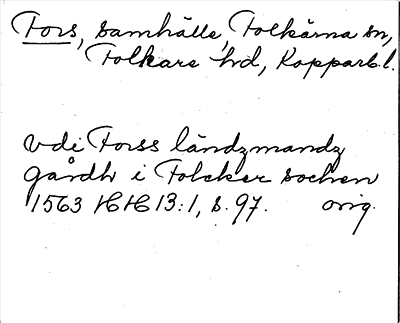 Fors, samhälle, Folkärna sn,
Folkare hd, Kopparb. l.
vdi Forss ländzmandz
gårdh i Folcker sochen
1563 HH 13:1, s. 97. orig.